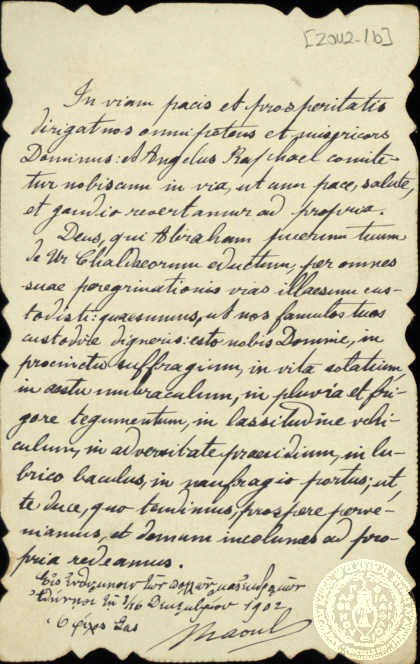 [ZOU2-1b]
In viam pacis et prosperitatis
dirigat nos omnipotens et misericors
Dominus: et Angelus Raphael comite-
tur nobiscum in via, ut cum pace, salute,
et gaudio revertamur ad propria.
Deus, qui Abraham puerum tuum
de Ur Chaldaeorum eductum, per omnes
suae peregrinationis vias illaesum cus-
todisti: quaesumus, ut nos famulos tuos
custodire digneris: esto nobis Domine, in
procinctu suffragium, in vita solatium,
in aestu umbraculum, in pluvia et fri-
gore tegumentum, in lassitudine vehi-
culum, in adversitate praesidium, in lu-
brico baculus, in naufragio portus; ut,
te duce, quo tendimus, prospere perve-
niamus, et domum incolumes ad pro-
pria redeamus.
Εἰς ἐνθύμησιν τῶν
Ἀθήνησι τῇ 3/16 Δεκεμβρίου 1902
Ὁ φίλος σας
Raoul